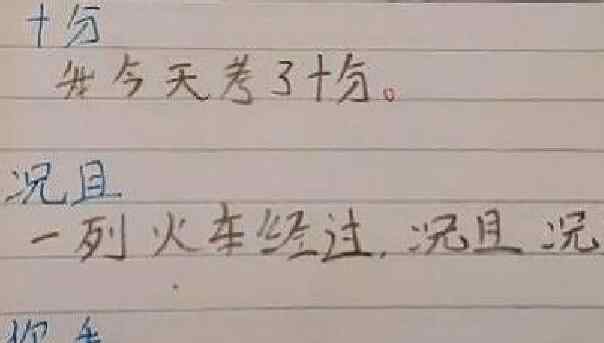 十分
今天考了十分。
况且
一列火车经过，况且况